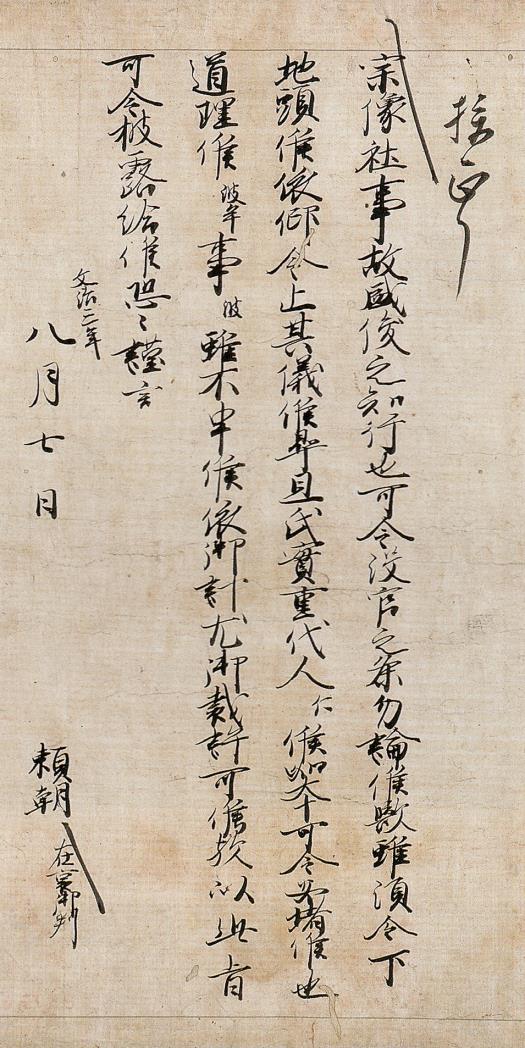 宗像社事故盛俊之知行也可令没官之条勿論候歟雖須令下
地頭候依仰令止其儀候畢且氏實重代人仁候如本可令安堵候也
道理候波牟事波雖不申候依御計尤御裁許可候歟以此旨
可令披露給候恐々謹言
文治二年
八月七日
頼朝
在裏判